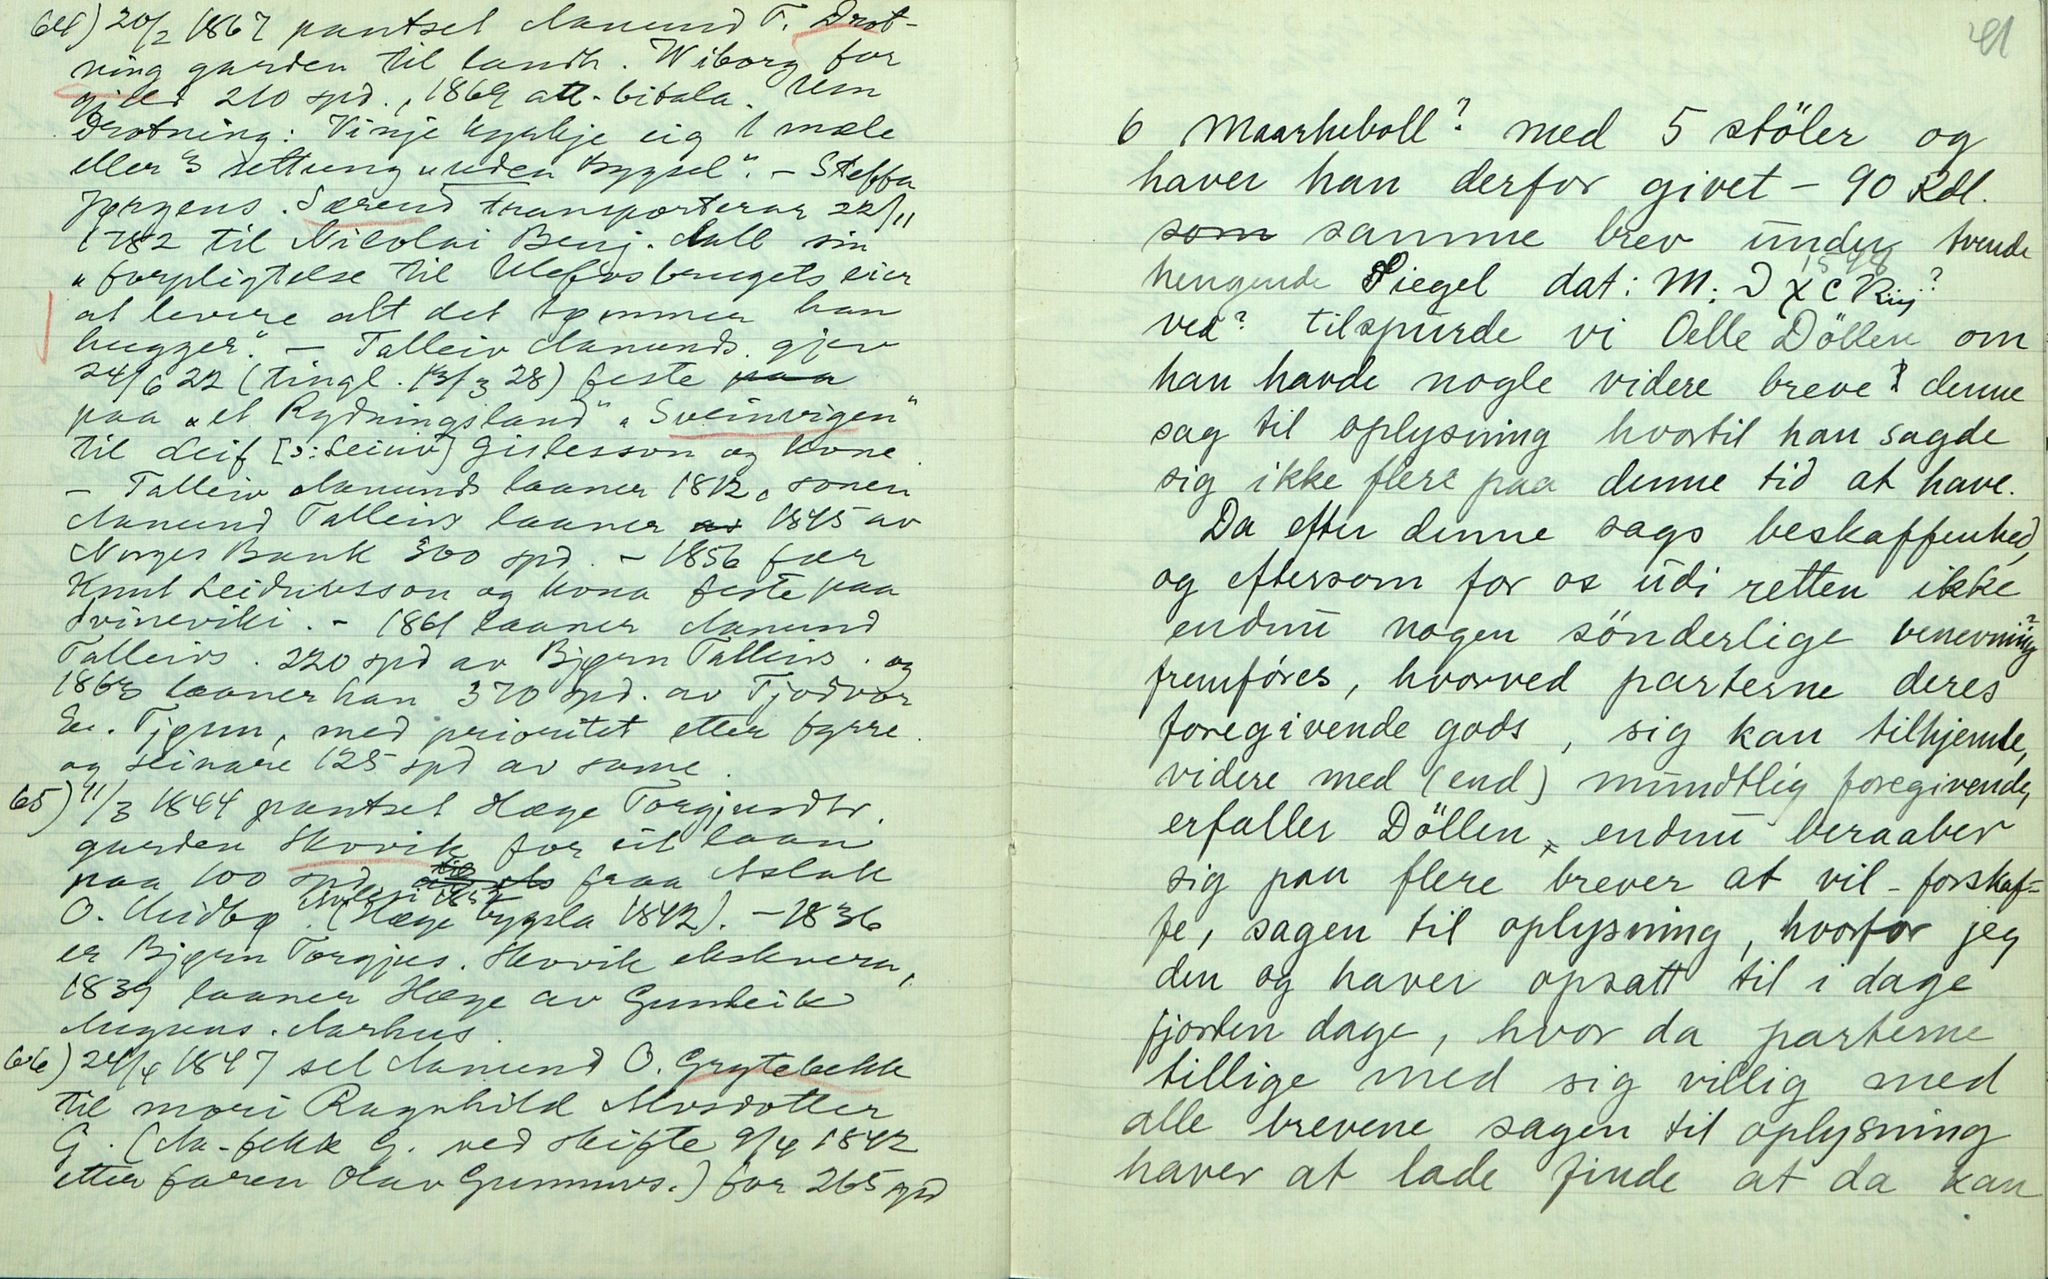 64) 20/2 1867 pantset Aamund T. Drot-
ning garden til landh. Wiborg for
gjeld 210 spd., 1869 att-bitala. Um
Drotning: Vinje kyrkje eig 1 mæle
eller 3 settung "uden bygsel". – Steffa
Jørgens. Særend transporterar 22/11
1782 til Nicolai Benj. Aall sin
"forpligtelse til Ulefosbrugets eier
at levere alt det tømmer han
hugger". – Talleiv Aamunds. gjev
24/6 22 (tingl. 13/3 28) feste paa
paa "et Rydningsland" "Sveinvigen"
til Leif [ɔ: Leiuv] Gislesson og kone.
– Talleiv Aamunds laaner 1812, sonen
Aamund Talleivs laaner av 1845 av
Norges Bank 300 spd. – 1856 fær
Knut Leidulvsson og kona feste paa
Svineviki. – 1861 laaner Aamund
Talleivs. 220 spd av Bjørn Talleivs. og
1863 laaner han 370 spd. av Tjodvor
Ee. Tjønn, med prioritet etter fyrre
og seinare 125 spd av same.
65) 11/3 1844 pantset Hæge Torgjusdtr.
garden Hovvik for eit laan
paa 100 spd. fraa Aslak
O. Midbø. (Hæge bygsla 1842). – 1836
er Bjørn Torgjus. Hovvik ekskvera,
1839 laaner Hæge av Gunleik
Auguns. Aarhus.
66) 24/4 1847 sel Aamund O. Grytebekk
til mori Ragnhild Alvsdotter
G. (Aa- fekk G. ved skifte 9/4 1842
etter faren Olav Gunnuvs.) for 265 spd
41
6 Maarkeboll? med 5 stöler og
haver han derfor givet – 90 Rdl.
som samme brev ŭnder tvende
hengende Siegel dat: M: D X C Riij?
1598
ved? tilspŭrde vi Oelle Döllen om
han havde nogle videre breve i denne
sag til oplysning hvortil han sagde
sig ikke flere paa denne tid at have.
Da efter denne sags beskaffenhed,
og eftersom for os ŭdi retten ikke
endnŭ nogen sönderlige benevning?
fremföres, hvorved parterne deres
foregivende gods, sig kan tilhjemle,
videre med (end) mŭndtlig foregivende,
erfaller Döllen, endnŭ beraaber
sig paa flere brever at vil – forskaf=
fe, sagen til oplysning, hvorfor jeg
den og haver opsatt til i dage
fjorten dage, hvor da parterne
tillige med sig villig med
alle brevene sagen til oplysning
haver at lade finde at da kan